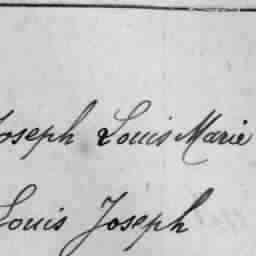 Joseph Louis Marie
Louis Joseph